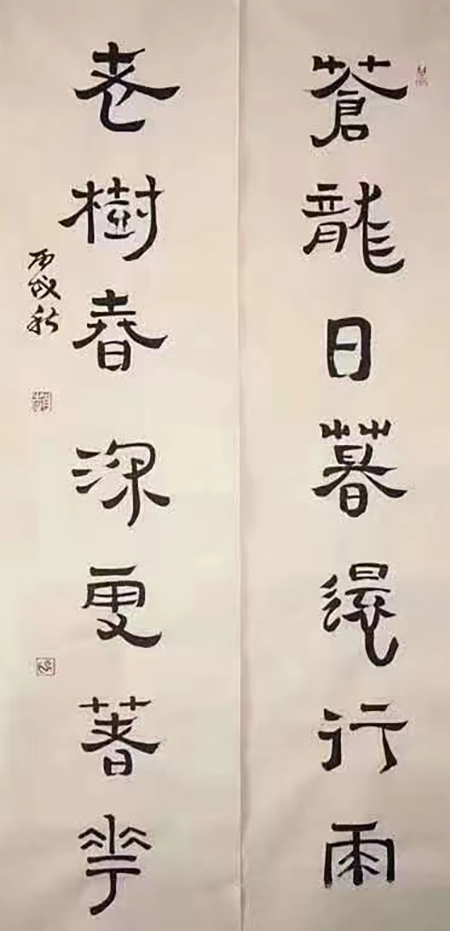 蒼龍日暮還行雨
老樹春深更著花
丙戌秋